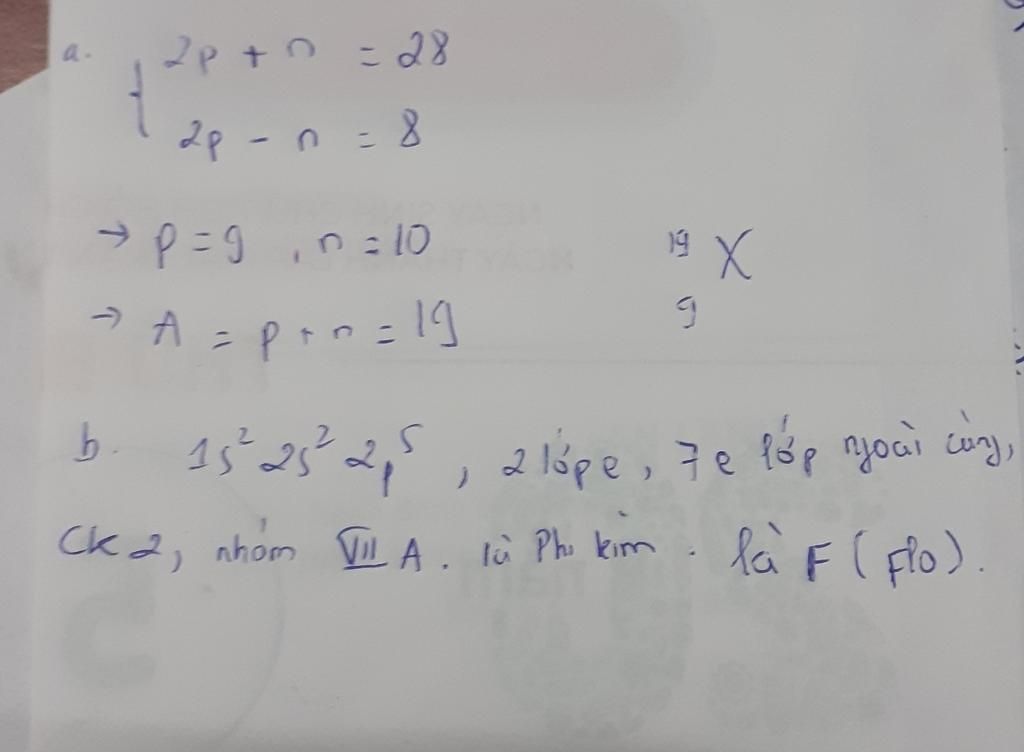 a. { 2p + n = 28
2p - n = 8
→ p = 9, n = 10
→ A = p + n = 19
19 X
9
b. 1s² 2s² 2p⁵, 2 lớp e, 7e lớp ngoài cùng,
Ck 2, nhóm VII A. là Phi kim. là F (Flo).